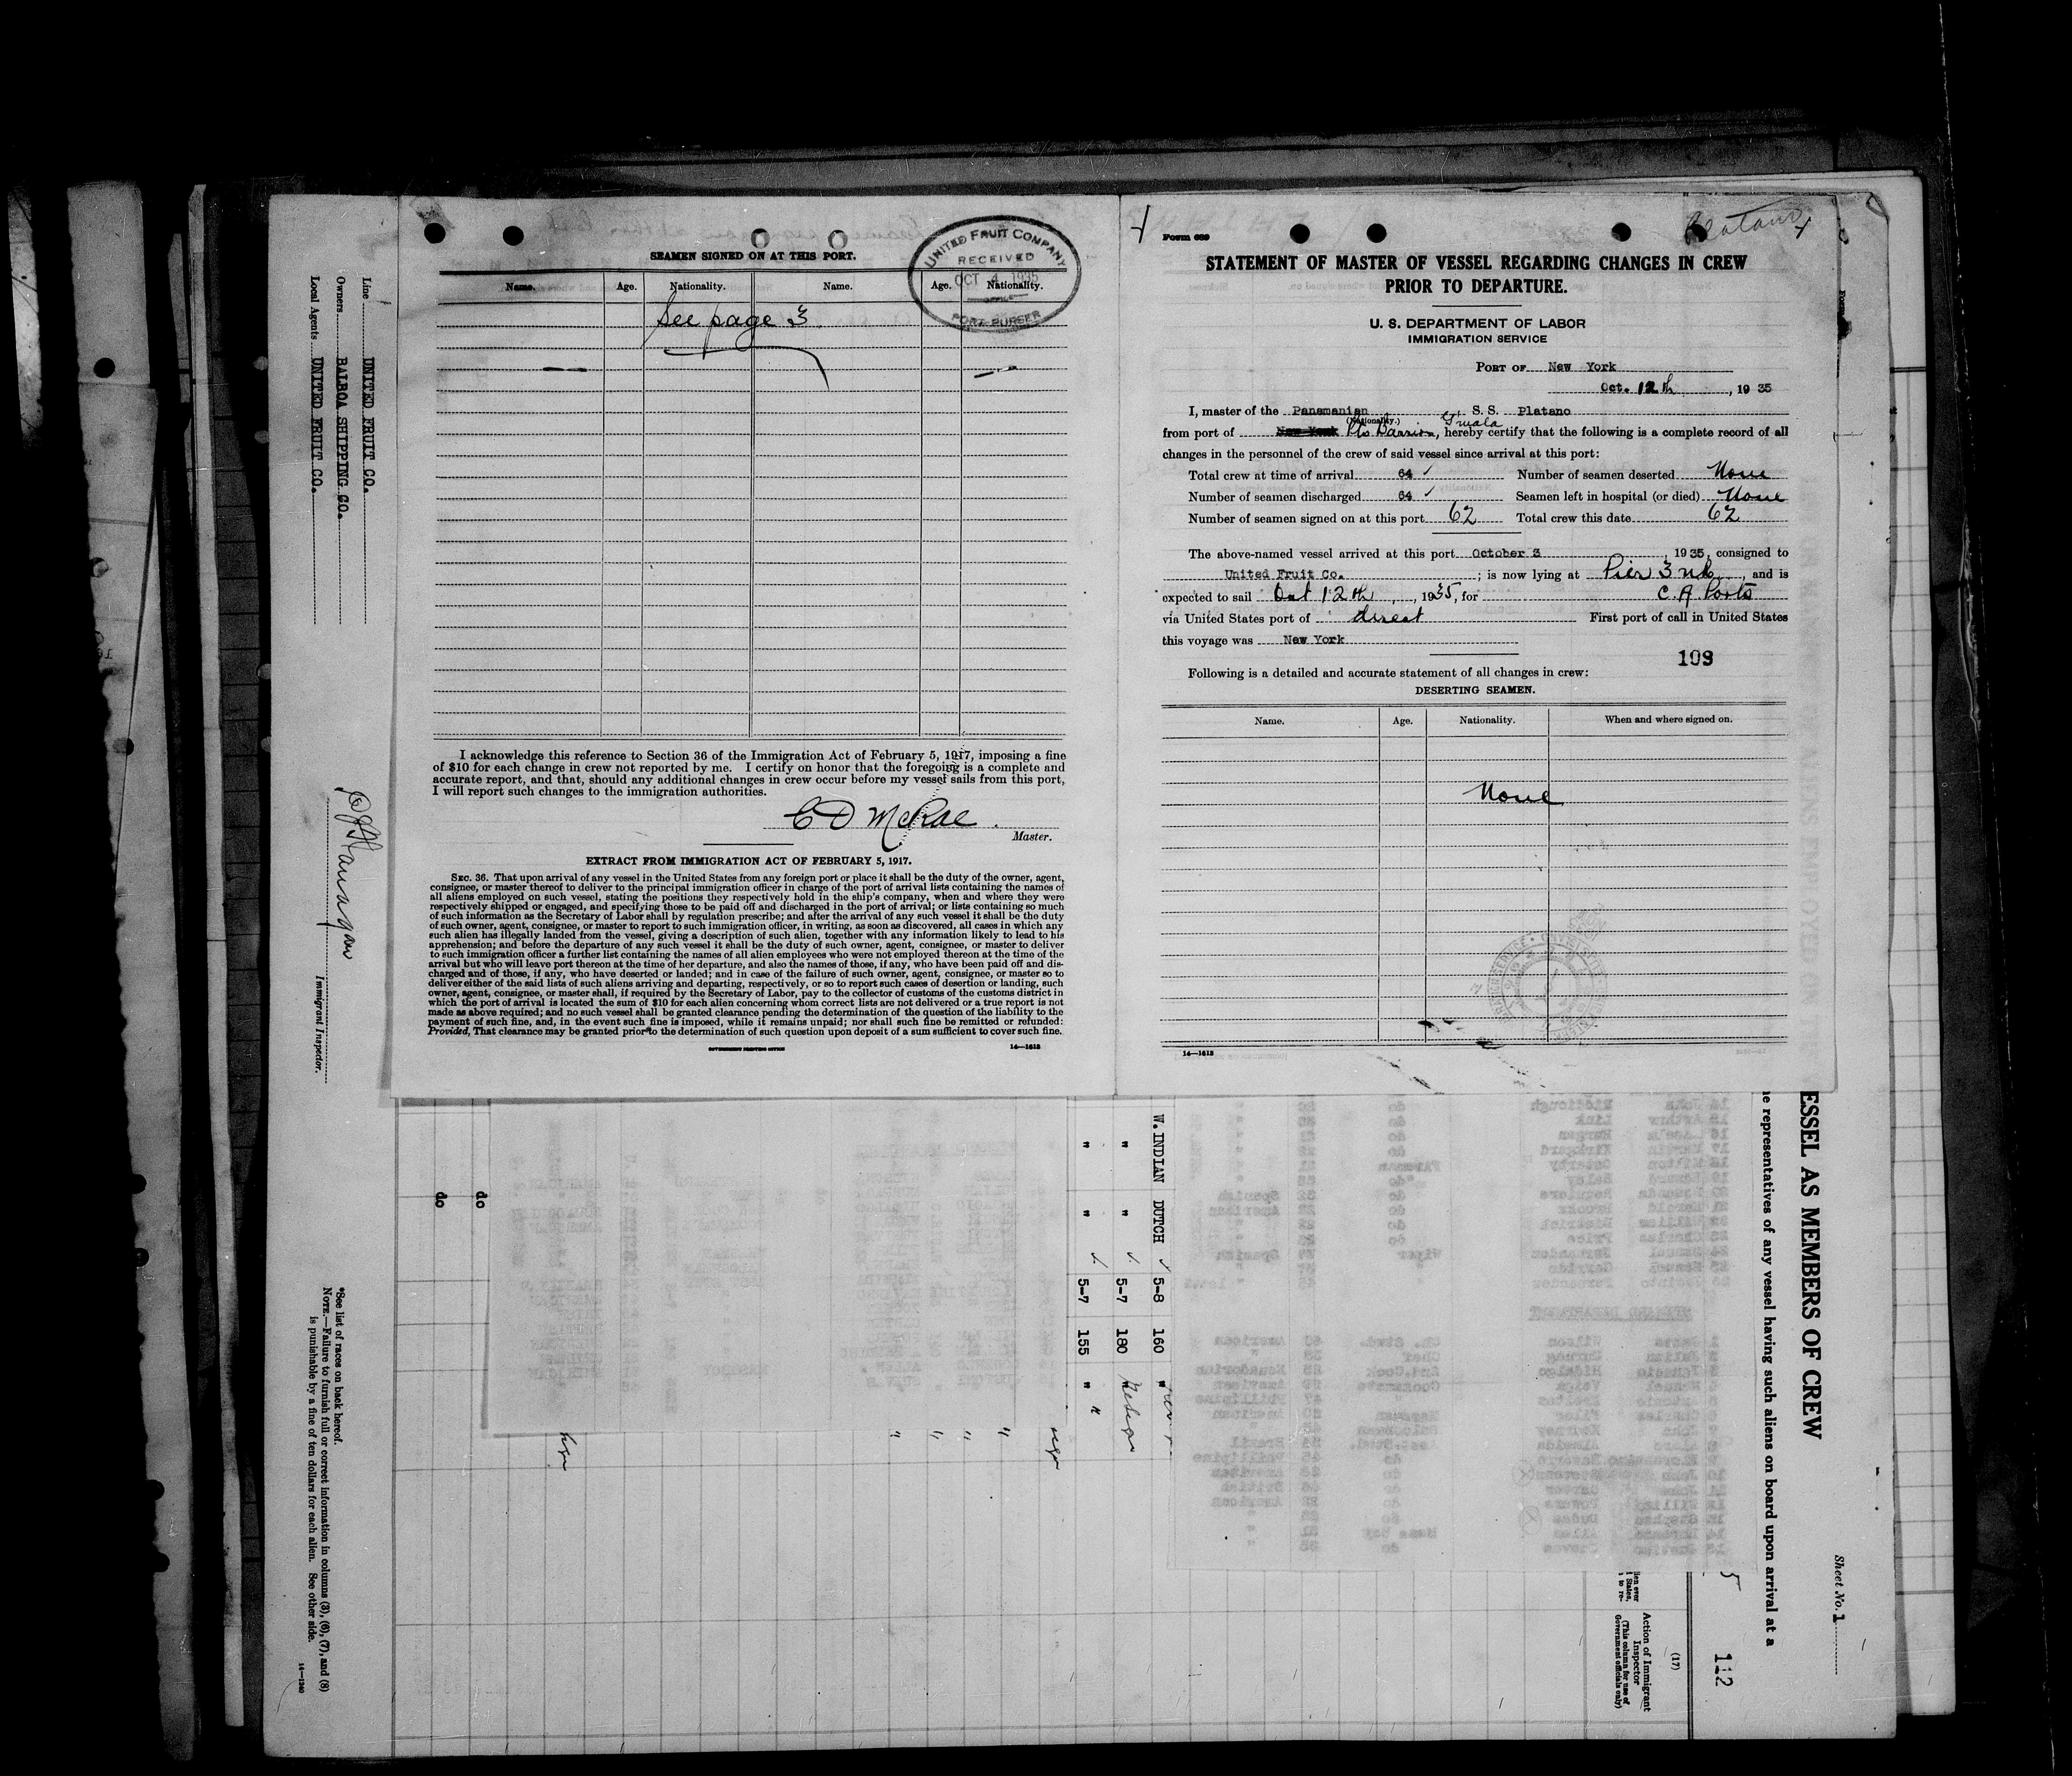 SEAMEN SIGNED ON AT THIS PORT.
UNITED FRUIT COMPANY
RECEIVED
OCT 4 1935
OFFICE
PORT PURSER
Name. Age. Nationality. Name. Age. Nationality.
See page 3
I acknowledge this reference to Section 36 of the Immigration Act of February 5, 1917, imposing a fine
of $10 for each change in crew not reported by me. I certify on honor that the foregoing is a complete and
accurate report, and that, should any additional changes in crew occur before my vessel sails from this port,
I will report such changes to the immigration authorities.
C D McRae
Master.
EXTRACT FROM IMMIGRATION ACT OF FEBRUARY 5, 1917.
SEC. 36. That upon arrival of any vessel in the United States from any foreign port or place it shall be the duty of the owner, agent,
consignee, or master thereof to deliver to the principal immigration officer in charge of the port of arrival lists containing the names of
all aliens employed on such vessel, stating the positions they respectively hold in the ship's company, when and where they were
respectively shipped or engaged, and specifying those to be paid off and discharged in the port of arrival; or lists containing so much
of such information as the Secretary of Labor shall by regulation prescribe; and after the arrival of any such vessel it shall be the duty
of such owner, agent, consignee, or master to report to such immigration officer, in writing, as soon as discovered, all cases in which any
such alien has illegally landed from the vessel, giving a description of such alien, together with any information likely to lead to his
apprehension; and before the departure of any such vessel it shall be the duty of such owner, agent, consignee, or master to deliver
to such immigration officer a further list containing the names of all alien employees who were not employed thereon at the time of the
arrival but who will leave port thereon at the time of her departure, and also the names of those, if any, who have been paid off and dis-
charged and of those, if any, who have deserted or landed; and in case of the failure of such owner, agent, consignee, or master so to
deliver either of the said lists of such aliens arriving and departing, respectively, or so to report such cases of desertion or landing, such
owner, agent, consignee, or master shall, if required by the Secretary of Labor, pay to the collector of customs of the customs district in
which the port of arrival is located the sum of $10 for each alien concerning whom correct lists are not delivered or a true report is not
made as above required; and no such vessel shall be granted clearance pending the determination of the question of the liability to the
payment of such fine, and, in the event such fine is imposed, while it remains unpaid; nor shall such fine be remitted or refunded:
Provided, That clearance may be granted prior to the determination of such question upon deposit of a sum sufficient to cover such fine.
GOVERNMENT PRINTING OFFICE
14—1613
Form 689
Platano
STATEMENT OF MASTER OF VESSEL REGARDING CHANGES IN CREW
PRIOR TO DEPARTURE.
U. S. DEPARTMENT OF LABOR
IMMIGRATION SERVICE
PORT OF New York
Oct. 12th, 1935
I, master of the Panamanian S. S. Platano
(Nationality.)
from port of New York Pto Barrios, G'mala hereby certify that the following is a complete record of all
changes in the personnel of the crew of said vessel since arrival at this port:
Total crew at time of arrival 64 ✓ Number of seamen deserted None
Number of seamen discharged 64 ✓ Seamen left in hospital (or died) None
Number of seamen signed on at this port 62 Total crew this date 62
The above-named vessel arrived at this port October 3, 1935, consigned to
United Fruit Co.; is now lying at Pier 3 NR, and is
expected to sail Oct 12th, 1935, for C. A. Ports
via United States port of direct First port of call in United States
this voyage was New York
109
Following is a detailed and accurate statement of all changes in crew:
DESERTING SEAMEN.
Name. Age. Nationality. When and where signed on.
None
14—1613
Line UNITED FRUIT CO.
Owners BALBOA SHIPPING CO.
Local Agents UNITED FRUIT CO.
Immigrant Inspector.
*See list of races on back hereof.
NOTE.—Failure to furnish full or correct information in columns (3), (6), (7), and (8)
is punishable by a fine of ten dollars for each alien. See other side.
14—1240
W. INDIAN DUTCH ✓ 5-8 160 "
" " ✓ 5-7 180
" " ✓ 5-7 155 "
do
do
ESSEL AS MEMBERS OF CREW
e representatives of any vessel having such aliens on board upon arrival at a
Sheet No. 1
112
(17)
Action of Immigrant
Inspector
(This column for use of
Government officials only)